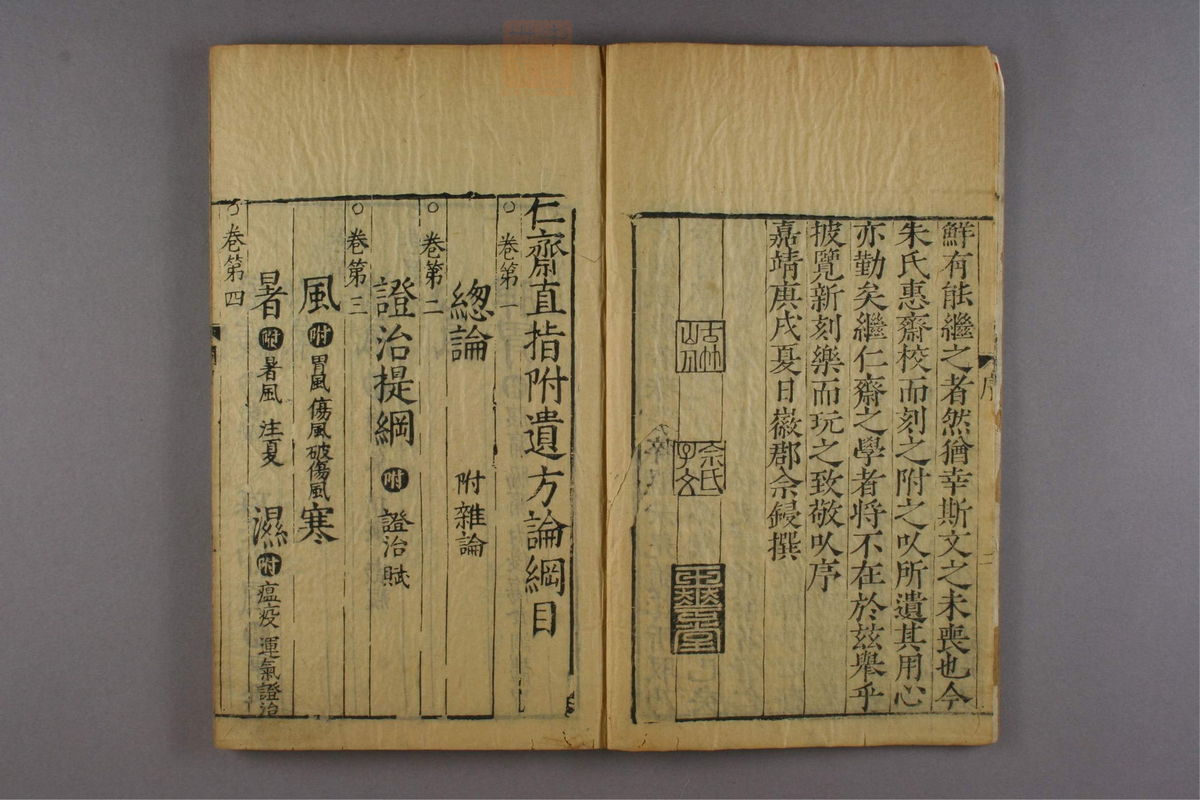 鮮有能繼之者然猶幸斯文之未喪也今
朱氏惠齋校而刻之附之以所遺其用心
亦勤矣繼仁齋之學者將不在於茲舉乎
披覽新刻樂而玩之致敬以序
嘉靖庚戌夏日徽郡佘錽撰
佘氏
序
二
仁齋直指附遺方論綱目
○卷第一
總論 附雜論
○卷第二
證治提綱 附 證治賦
○卷第三
風 附 胃風 傷風 破傷風 寒
暑 附 暑風 注夏 濕 附 瘟疫 運氣證治
○卷第四